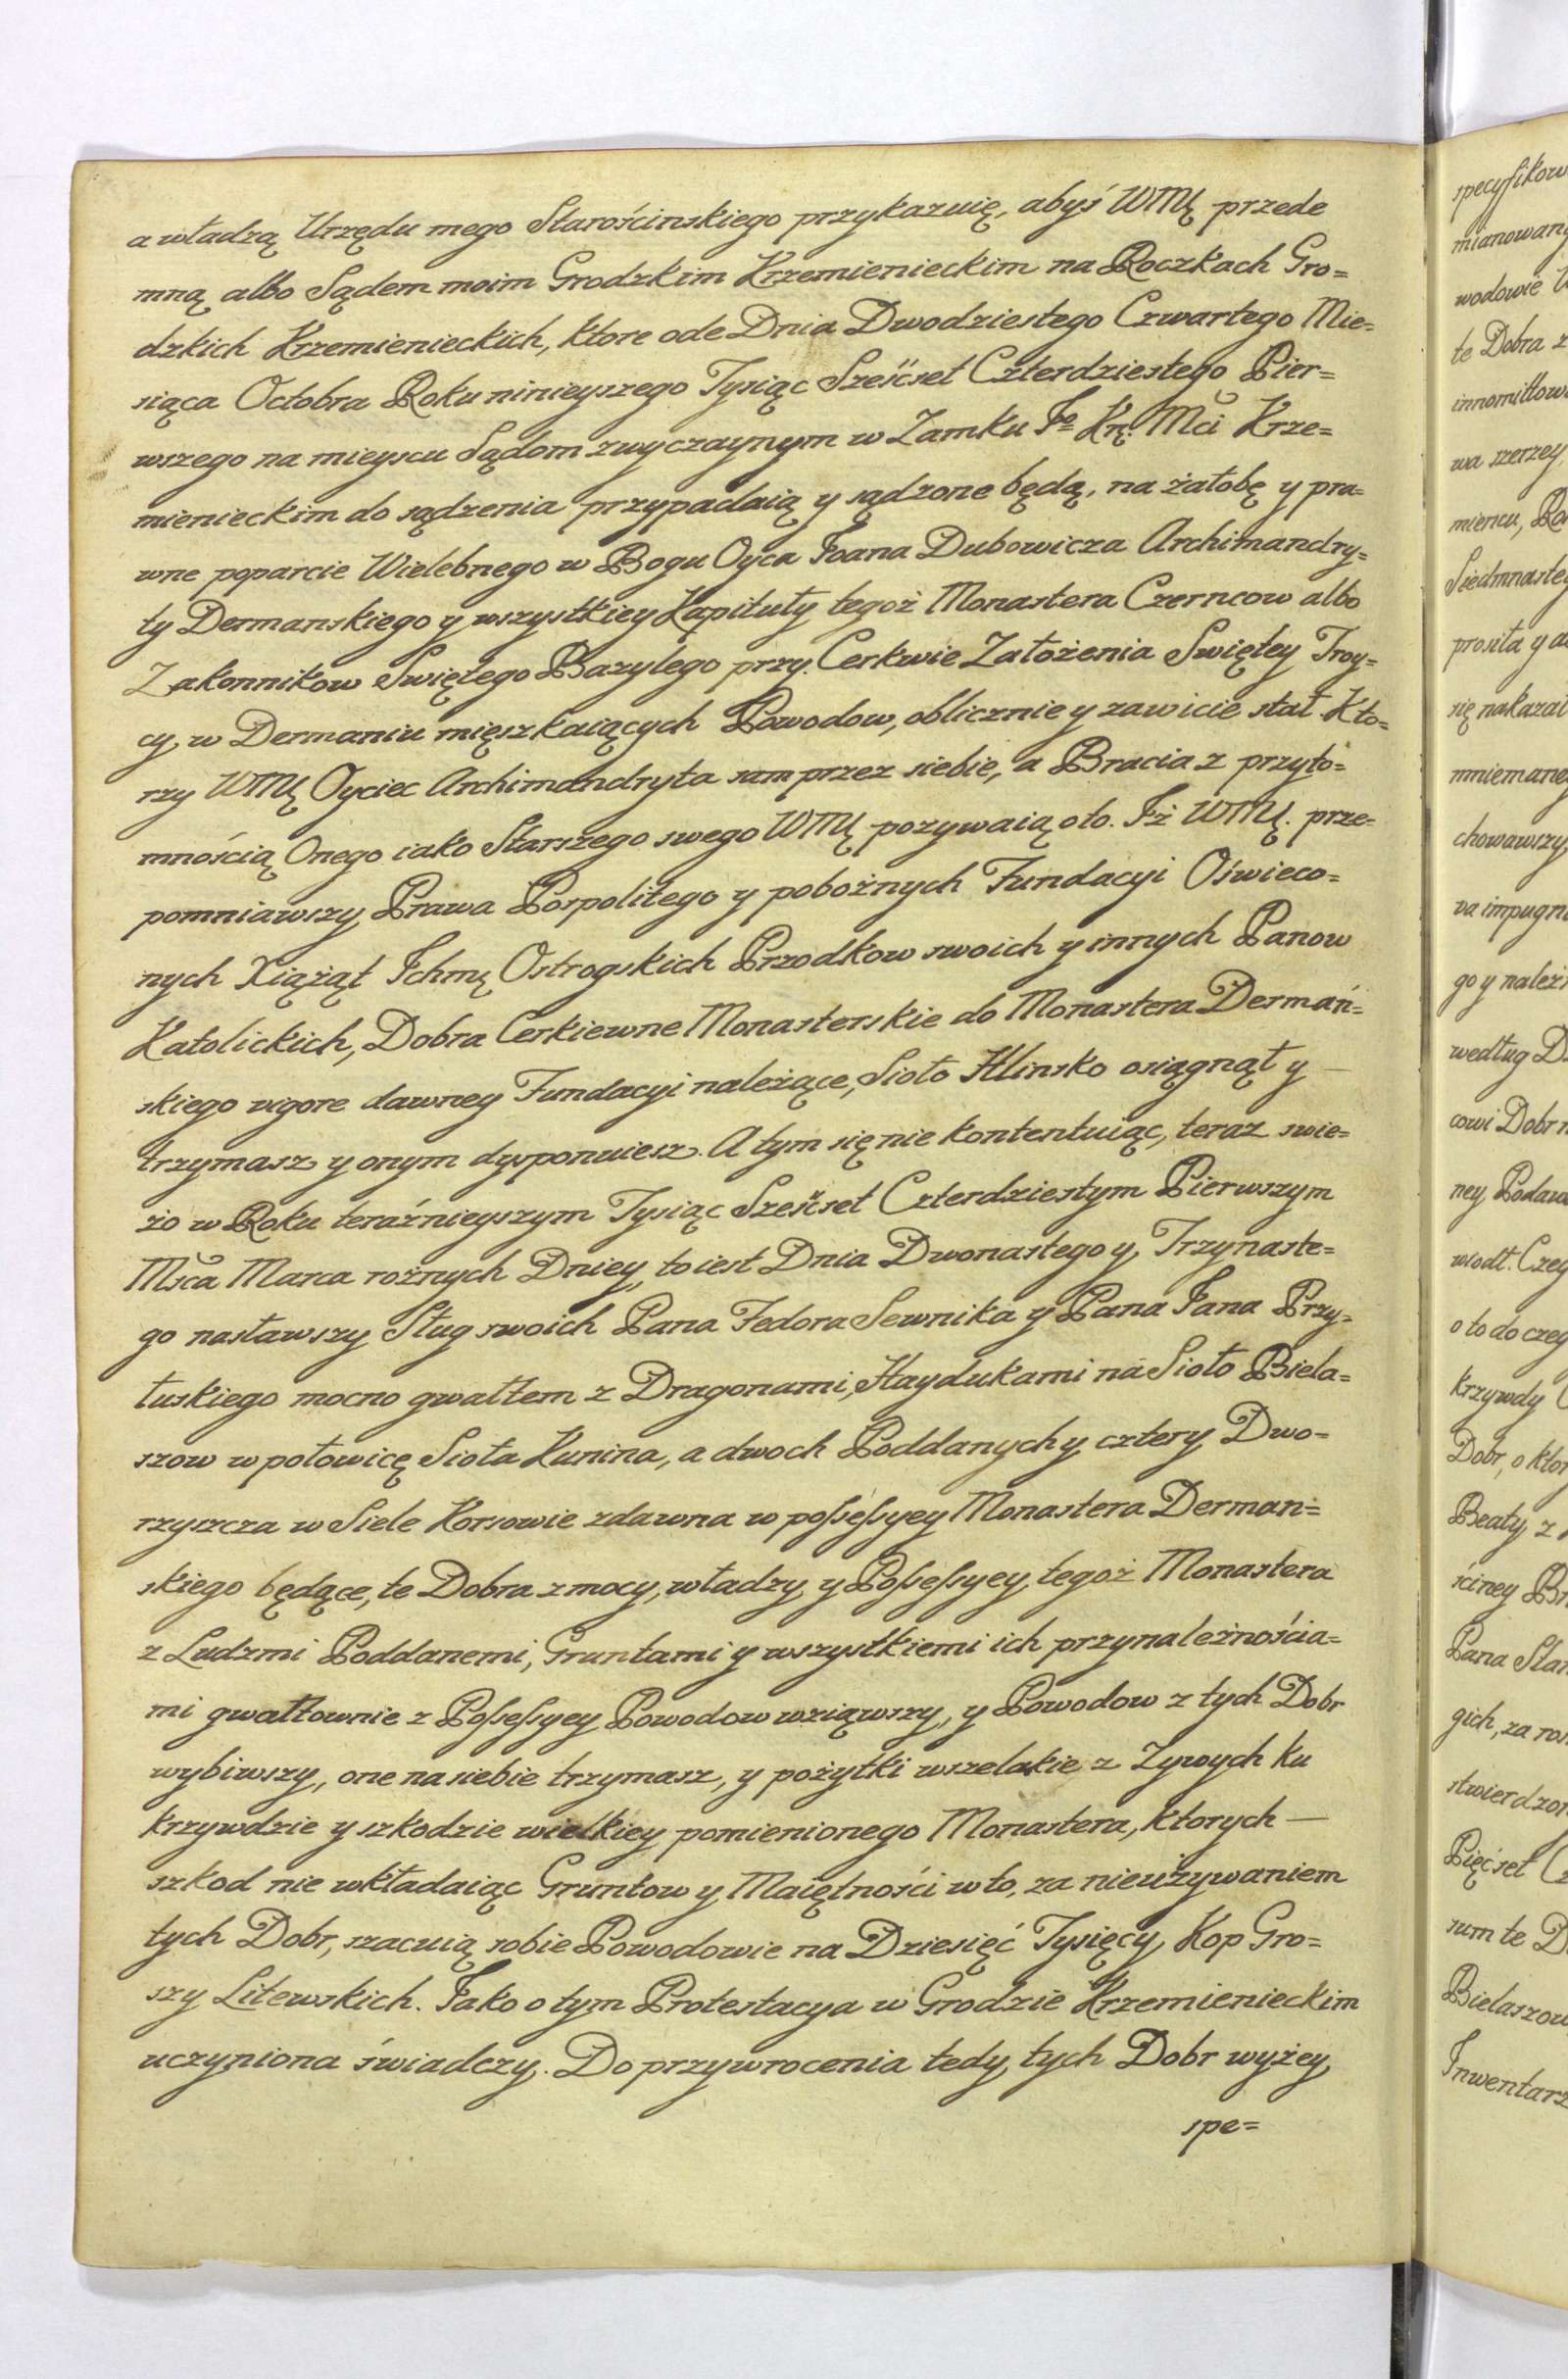 a władzą Urzędu mego Starościnskiego przykazuię, abyś WMĘ przede
mną albo Sądem moim Grodzkim Krzemienieckim na Roczkach Gro=
dzkich Krzemienieckich, ktore ode Dnia Dwodziestego Czwartego Mie=
siąca Octobra Roku ninieyszego Tysiąc Sześćset Czterdziestego Pier=
wszego na mieyscu Sądom zwyczaynym w Zamku Jo Krę: Mci Krze=
mienieckim do sądzenia przypadaią y sądzone będą, na żałobę y pra=
wne poparcie Wielebnego w Bogu Oyca Joana Dubowicza Archimandry=
ty Dermanskiego y wszystkiey Kapituły tegoż Monastera Czerncow albo
Zakonnikow Swiętego Bazylego przy Cerkwie Założenia Swiętey Troy=
cy w Dermaniu mięszkaiących Powodow, oblicznie y zawicie stał Kto=
rzy WMĘ Oyciec Archimandryta sam przez siebie, a Bracia z przyto=
mnością Onego iako Starszego swego WMĘ pozywaią oto. Iż WMĘ. prze=
pomniawszy Prawa Pospolitego y pobożnych Fundacyi Oświeco=
nych Xiążąt Ichmę Ostrogskich Przodkow swoich y innych Panow
Katolickich, Dobra Cerkiewne Monasterskie do Monastera Dermań=
skiego vigore dawney Fundacyi należące, Sioło Hlinsko osiągnął y —
trzymasz y onym dysponuiesz. A tym się nie kontentuiąc, teraz swie=
żo w Roku teraźnieyszym Tysiąc Sześćset Czterdziestym Pierwszym
Msca Marca rożnych Dniey, to iest Dnia Dwonastego y Trzynaste=
go nasławszy Sług swoich Pana Fedora Sewnika y Pana Jana Przy=
łuskiego mocno gwałtem z Dragonami, Haydukami na Sioło Biela=
szow w połowicę Sioła Kunina, a dwoch Poddanych y cztery Dwo=
rzyszcza w Siele Korsowie zdawna w possessyey Monastera Derman=
skiego będące, te Dobra z mocy, władzy y Possessyey tegoż Monastera
z Ludzmi Poddanemi, Gruntami y wszystkiemi ich przynależnościa=
mi gwałtownie z Possessyey Powodow wziąwszy, y Powodow z tych Dobr
wybiwszy, one na siebie trzymasz, y pożytki wszelakie z Zywych ku
krzywdzie y szkodzie wielkiey pomienionego Monastera, ktorych —
szkod nie wkładaiąc Gruntow y Maiętności w to, za nieużywaniem
tych Dobr, szacuią sobie Powodowie na Dziesięć Tysięcy Kop Gro=
szy Litewskich. Jako o tym Protestacya w Grodzie Krzemienieckim
uczyniona świadczy. Do przywrocenia tedy tych Dobr wyżey
spe=
specyfikow
mianowany
wodowie
te Dobra z
innomittow
wa szerzey
miencu,
Siedmnasteg
prosiła y
się nakazał
mniemaney
chowawszy
va impugn
go y należ
według D
cowi Dobr
ney Podaw
wiodł. Czeg
o to do czeg
krzywdy
Dobr, o ktor
Beaty z
ściney Br
Pana Sta
gich, za
stwierdzo
Pięćset
sum te D
Bielaszow
Inwentarz